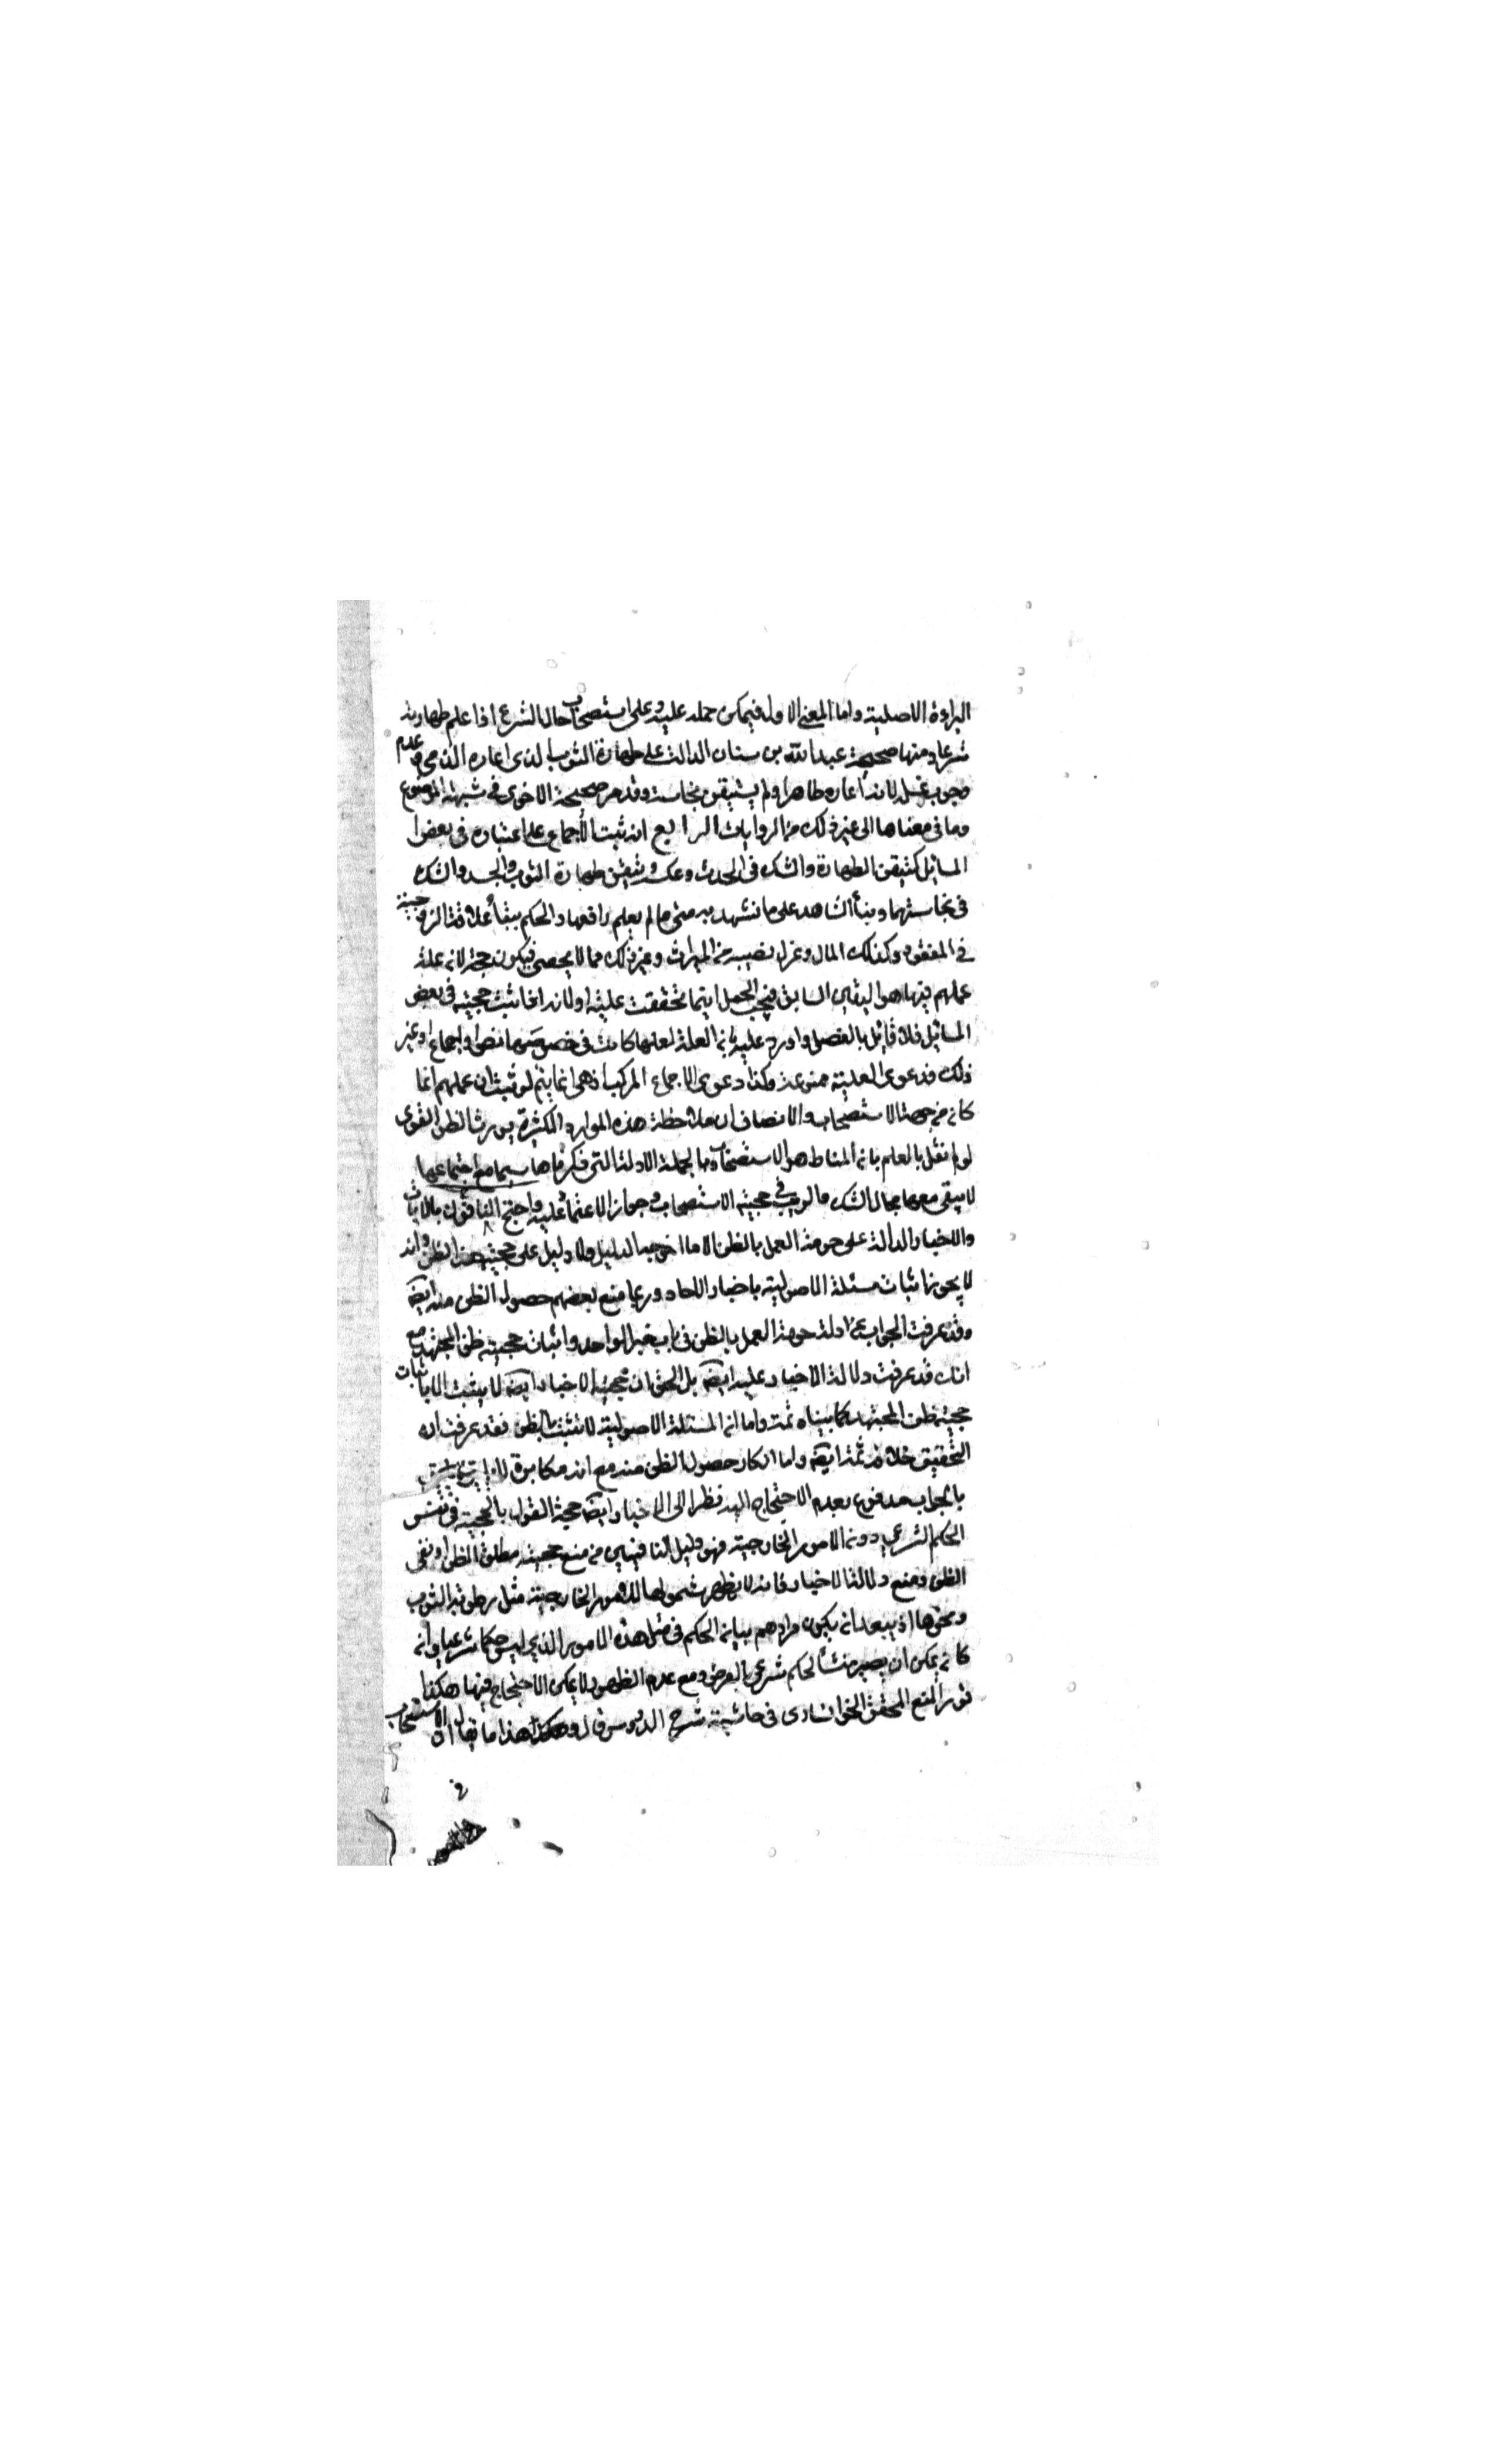 البراءة الاصلية واما المعنى الاول فيمكن حمله عليه وعلى استصحاب حال الشرع اذا علم طهارته
شرعا ومنها صحيحة عبد الله بن سنان الدالة على طهارة الثوب الذي اعاره الذمي وعدم
وجوب غسله لانه اعاره طاهرا ولم يستيقن نجاسته وقد مر صحيحة الاخرى في شبهة الموضوع
وما في معناها الى غير ذلك من الروايات الرابع انه ثبت الاجماع على اعتباره في بعض
المسائل كتيقن الطهارة والشك في الحدث وعكسه وتيقن طهارة الثوب والجسد والشك
في نجاستهما وبناء الشاهد على ما تشهد به متى ما لم يعلم رافعها والحكم ببقاء علاقة الزوجية
في المفقود وكذلك المال وعزل نصيبه من الميراث وغير ذلك مما لا يحصى فيكون حجة لان علة
عملهم فيها هو اليقين السابق فيجب العمل اينما تحققت عليه اولانه اذا ثبت حجيته في بعض
المسائل فلا قائل بالفصل واورد عليه بان العلة لعلها كانت في خصوصها نصا او اجماعا او غير
ذلك فدعوى العلية ممنوعة وكذا دعوى الاجماع المركب اذ هي انما يتم لو ثبت ان عملهم انما
كان من جهة الاستصحاب والانصاف ان ملاحظة هذه الموارد الكثيرة يورث الظن القوى
لو لم نقل بالعلم بان المناط هو الاستصحاب وبالجملة الادلة التي ذكرناها سيما مع اجتماعها
لا يبقى معها مجال الشك والريب في حجية الاستصحاب وجواز الاعتماد عليه واحتج النافون بالايات
والاخبار الدالة على حرمة العمل بالظن الا ما اخرجه الدليل ولا دليل على حجية هذا الظن وانه
لا يجوز اثبات مسئلة الاصولية باخبار الاحاد وربما منع بعضهم حصول الظن منه ايضا
وقد عرفت الجواب عن ادلة حرمة العمل بالظن في باب خبر الواحد واثبات حجية ظن المجتهد مع
انك قد عرفت دلالة الاخبار عليه ايضا بل الحق ان حجية الاخبار ايضا لا يثبت الا باثبات
حجية ظن المجتهد كما بيناه ثمة واما ان المسئلة الاصولية لا تثبت بالظن فقد عرفت ان
التحقيق خلافه ثمة ايضا واما انكار حصول الظن منه مع انه مكابرة
بالجواب مدفوع بعدم الاحتياج اليه نظرا الى الاخبار ايضا حجة القول بالحجية في نفس
الحكم الشرعي دون الامور الخارجية فهو دليل النافين من منع حجية مطلق الظن او نفى
الظن ومنع دلالة الاخبار فانه لا يظهر شمولها للامور الخارجية مثل رطوبة الثوب
ونحوها اذ يبعد ان يكون مرادهم بيان الحكم في مثل هذه الامور الذي ليس حكما شرعيا وان
كان يمكن ان يصير منشأ لحكم شرعي بالعرض ومع عدم الظهور لا يمكن الاحتجاج فيها هكذا
قرر المنع المحقق الخوانسارى في حاشية شرح الدروس قال وهكذا هذا ما يقال ان الاستصحاب
في